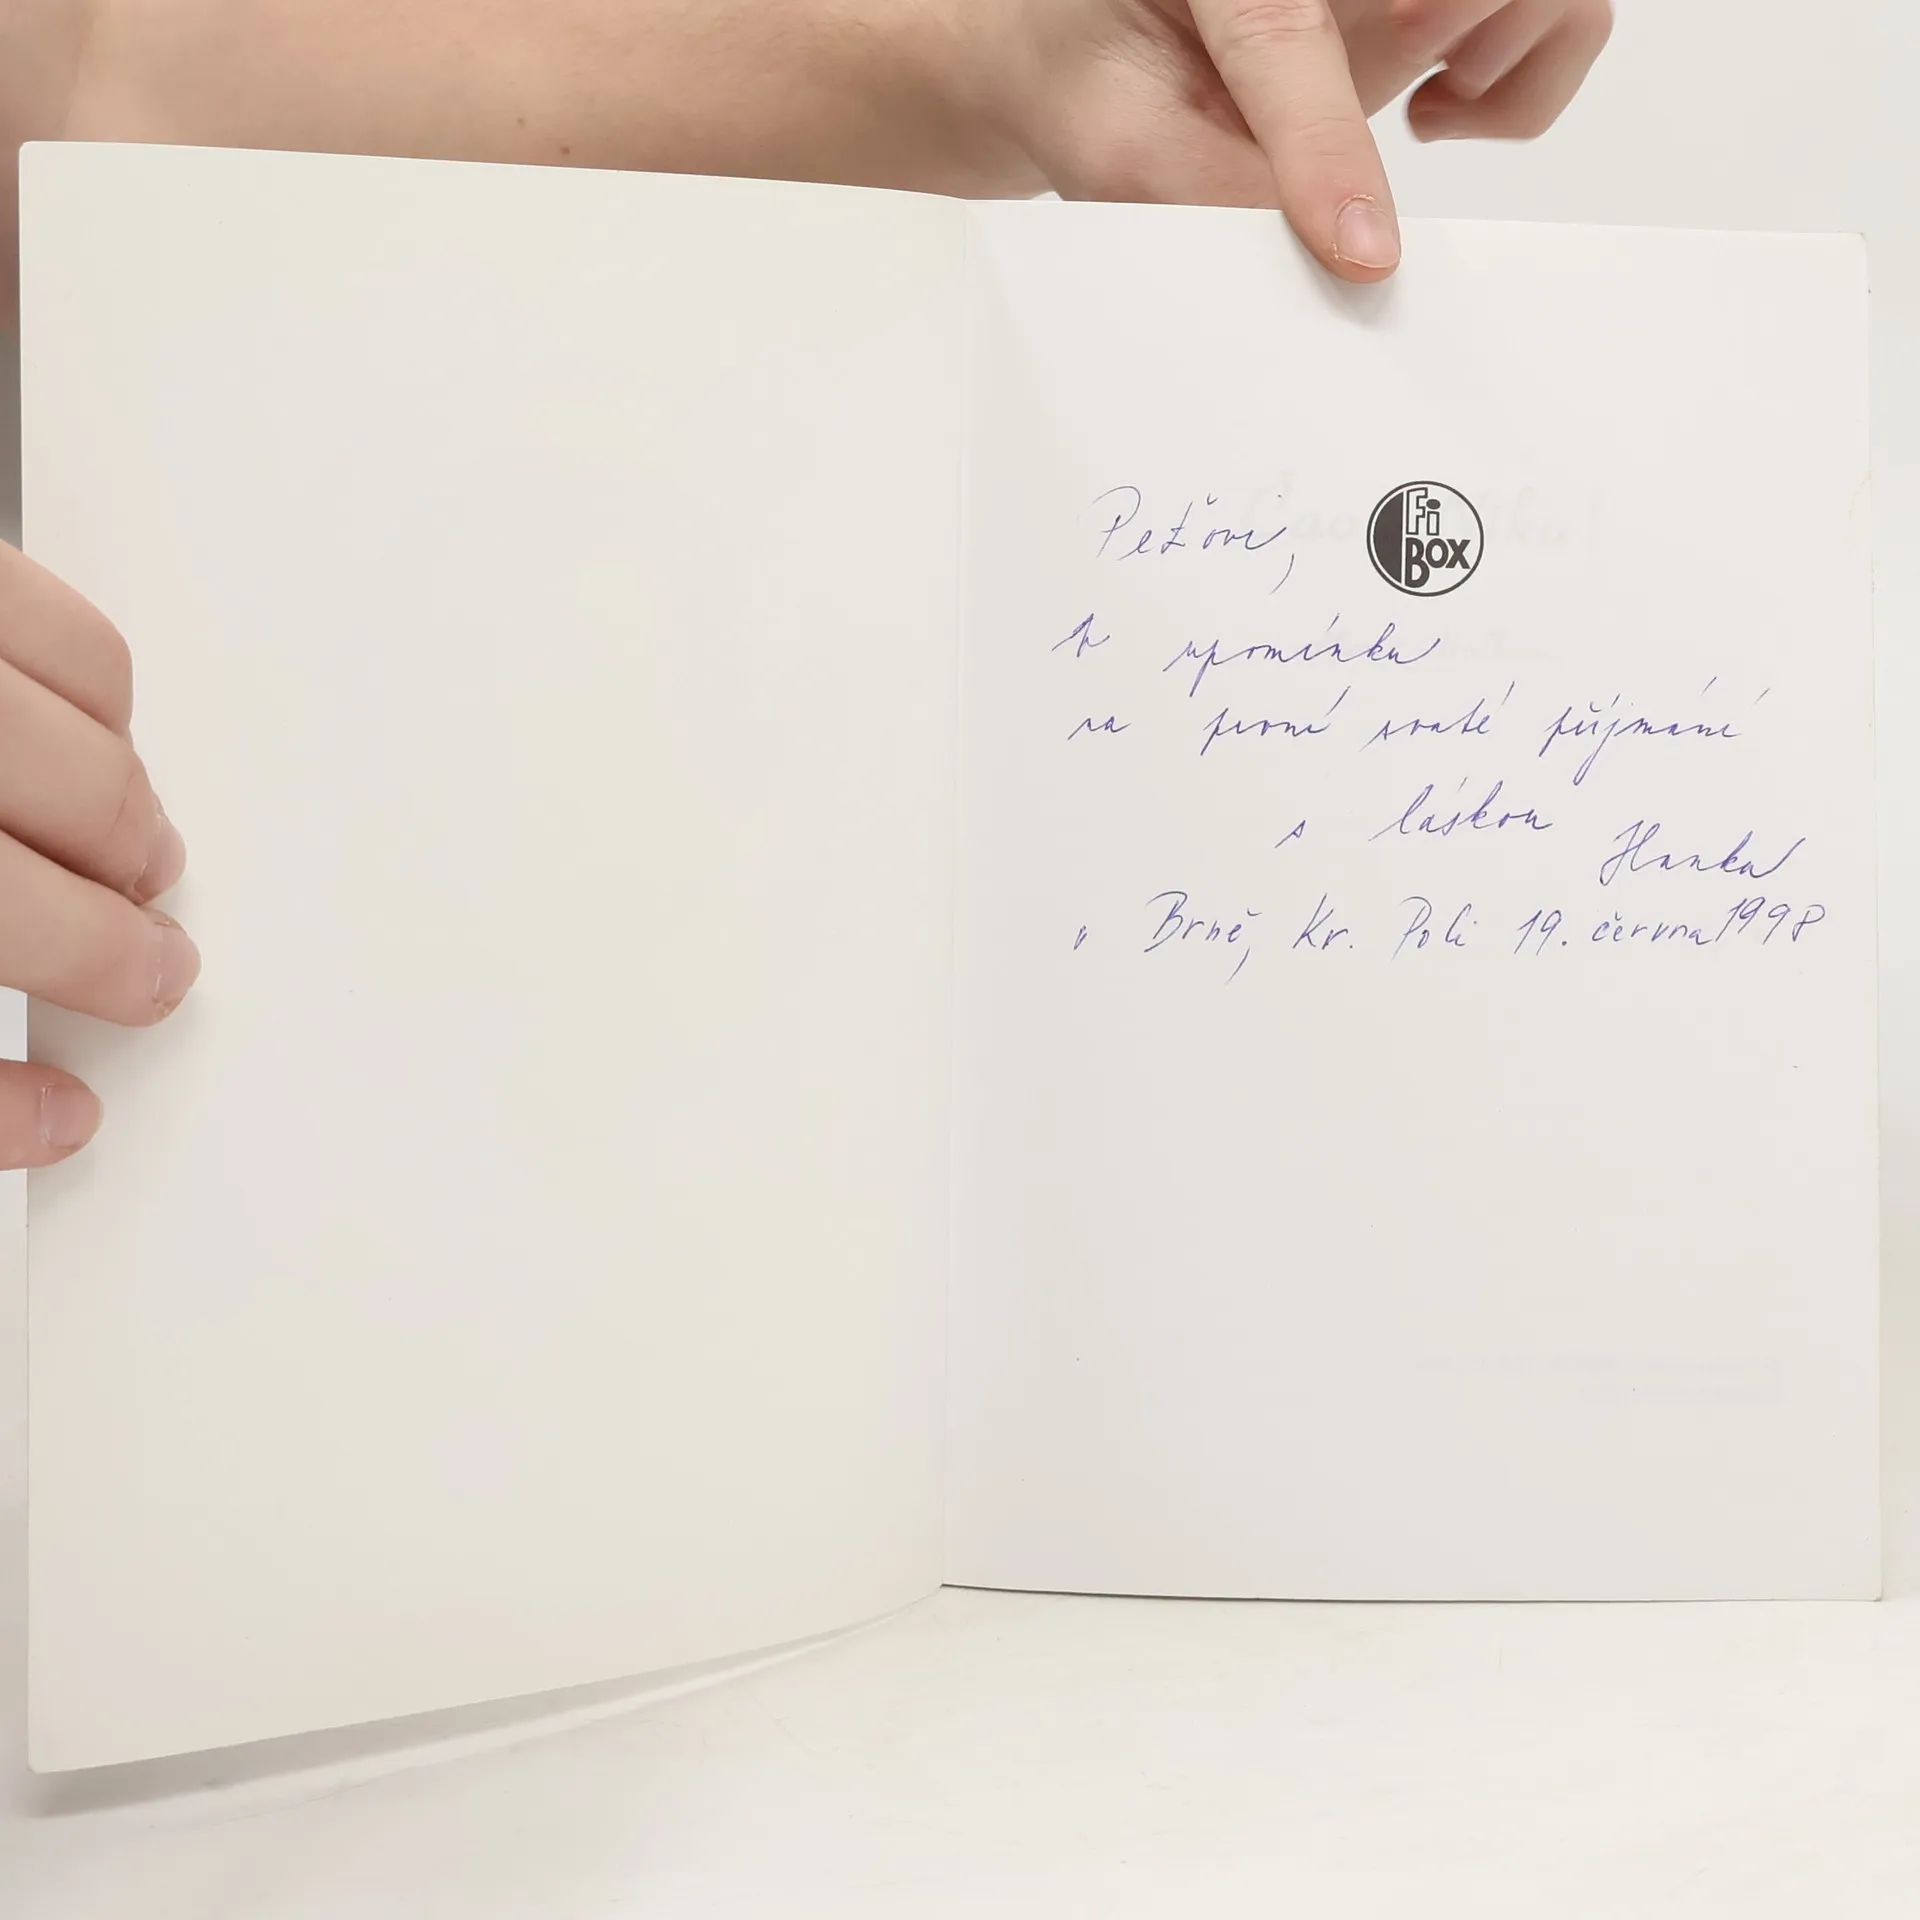 Peťovi,
Fi
BOX
k upomínku
na první svaté příjmání
s láskou
Hanka
v Brně, Kr. Poli 19. června 1998